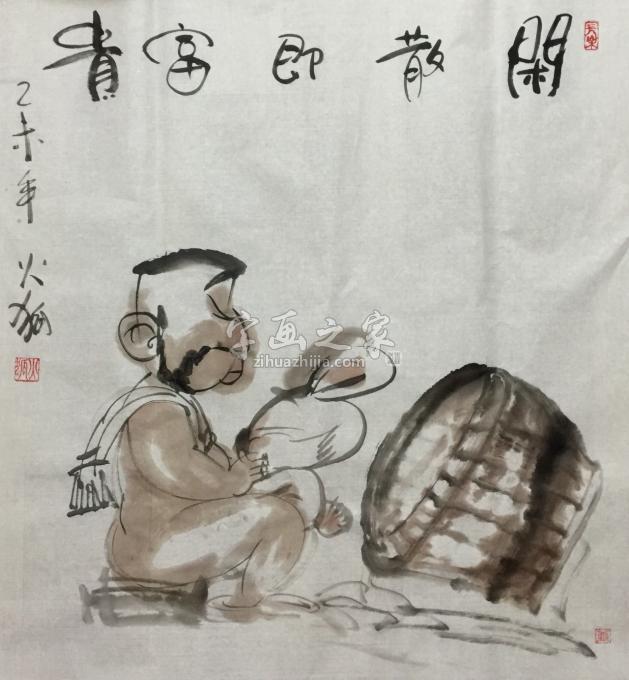 閑散即富貴
乙未年 火狗
字画之家
zihuazhijia.com